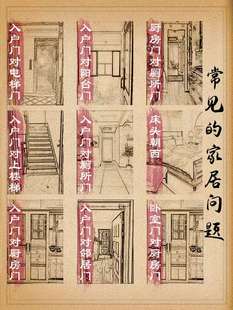 常见的家居问题
入户门对电梯门
入户门对阳台
厨房门对厕所门
入户门对上楼梯
入户门对厕所门
床头朝西
入户门对厨房门
入户门对邻居门
卧室门对厨房门